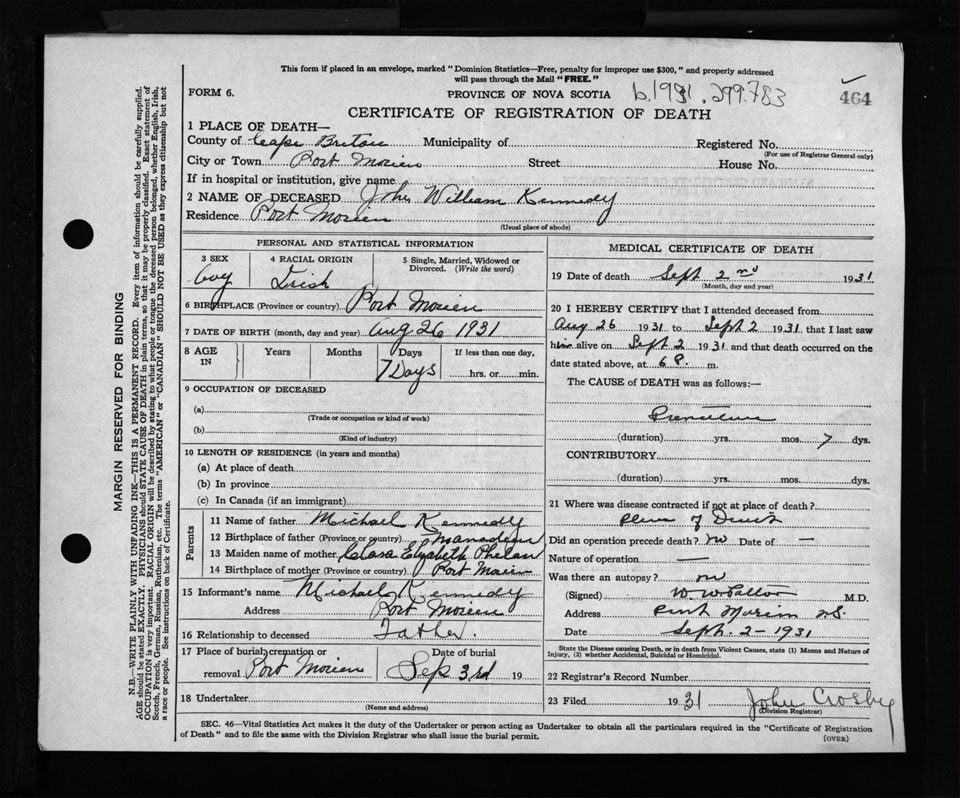 This form if placed in an envelope, marked "Dominion Statistics—Free, penalty for improper use $300," and properly addressed
will pass through the Mail "FREE."
FORM 6.
PROVINCE OF NOVA SCOTIA
b.1931.299.783
464
CERTIFICATE OF REGISTRATION OF DEATH
1 PLACE OF DEATH—
County of Cape Breton Municipality of Registered No.
(For use of Registrar General only)
City or Town Port Morien Street House No.
If in hospital or institution, give name
2 NAME OF DECEASED John William Kennedy
Residence Port Morien
(Usual place of abode)
PERSONAL AND STATISTICAL INFORMATION
3 SEX 4 RACIAL ORIGIN 5 Single, Married, Widowed or Divorced. (Write the word)
Boy Irish
6 BIRTHPLACE (Province or country) Port Morien
7 DATE OF BIRTH (month, day and year) Aug 26 1931
8 AGE IN Years Months Days If less than one day,
7 Days hrs. or min.
9 OCCUPATION OF DECEASED
(a)
(Trade or occupation or kind of work)
(b)
(Kind of industry)
10 LENGTH OF RESIDENCE (in years and months)
(a) At place of death
(b) In province
(c) In Canada (if an immigrant)
Parents
11 Name of father Michael Kennedy
12 Birthplace of father (Province or country)
13 Maiden name of mother Clara Elizabeth Phelan
14 Birthplace of mother (Province or country) Port Morien
15 Informant's name Michael Kennedy
Address Port Morien
16 Relationship to deceased Father.
17 Place of burial, cremation or removal Port Morien
Date of burial Sep 3rd 19
18 Undertaker
(Name and address)
MEDICAL CERTIFICATE OF DEATH
19 Date of death Sept 2nd 1931
(Month, day and year)
20 I HEREBY CERTIFY that I attended deceased from
Aug 26 1931 to Sept 2 1931, that I last saw
him alive on Sept 2 1931 and that death occurred on the
date stated above, at 6 P. m.
The CAUSE of DEATH was as follows:—
Premature
(duration) yrs. mos. 7 dys.
CONTRIBUTORY
(duration) yrs. mos. dys.
21 Where was disease contracted if not at place of death?
place of Death
Did an operation precede death? no Date of —
Nature of operation —
Was there an autopsy? no
(Signed) M.D.
Address Port Morien N.S.
Date Sept. 2 - 1931
State the Disease causing Death, or in death from Violent Causes, state (1) Means and Nature of
Injury, (2) whether Accidental, Suicidal or Homicidal.
22 Registrar's Record Number
23 Filed 1931 John Crosby
(Division Registrar)
SEC. 46—Vital Statistics Act makes it the duty of the Undertaker or person acting as Undertaker to obtain all the particulars required in the "Certificate of Registration
of Death" and to file the same with the Division Registrar who shall issue the burial permit.
(OVER)
MARGIN RESERVED FOR BINDING
N.B.—WRITE PLAINLY WITH UNFADING INK—THIS IS A PERMANENT RECORD. Every item of information should be carefully supplied.
AGE should be stated EXACTLY. PHYSICIANS should STATE CAUSE OF DEATH in plain terms, so that it may be properly classified. Exact statement of
OCCUPATION is very important. RACIAL ORIGIN will be described by stating to what people or tongue the deceased person belonged, whether English, Irish,
Scotch, French, German, Russian, Ruthenian, etc. The terms "AMERICAN" or "CANADIAN" SHOULD NOT BE USED as they express citizenship but not
a race or people. See instructions on back of Certificate.